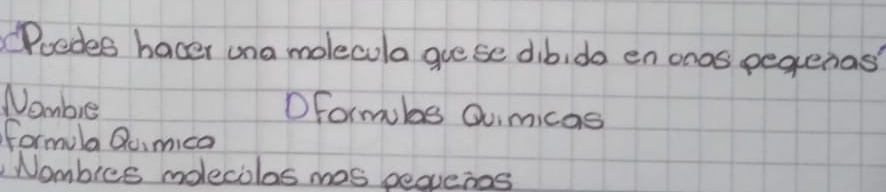 ¿Puedes hacer una molecula que se dibida en onas pequeñas?
Nombre
D Formulas Quimicas
formula Quimica
Nombres molecolas mas pequeñas